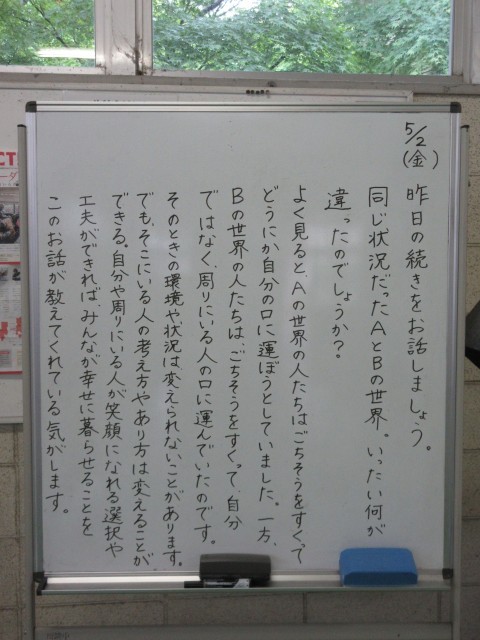 5/2(金)
昨日の続きをお話しましょう。
同じ状況だったAとBの世界。いったい何が
違ったのでしょうか?。
よく見るとAの世界の人たちはごちそうをすくって
どうにか自分の口に運ぼうとしていました。一方、
Bの世界の人たちは、ごちそうをすくって、自分
ではなく、周りにいる人の口に運んでいたのです。
そのときの環境や状況は変えられないことがあります。
でも、そこにいる人の考え方やあり方は変えることが
できる。自分や周りにいる人が笑顔になれる選択や
工夫ができれば、みんなが幸せに暮らせることを
このお話が教えてくれている気がします。